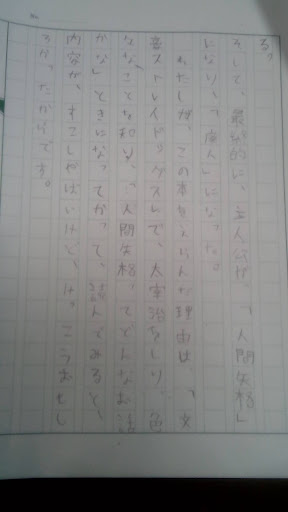 る。
そして、最終的に、主人公が、「人間失格」
になり、「廃人」になった。
わたしが、この本をえらんだ理由は、「文
豪ストレイドッグスLで、太宰治をしり、色
なことを知り、「人間失格」ってどんなお話
かな」ときになってかって、読んでみると、
内容が、すこしやばいけど、け。こうおもし
ろかったからです。